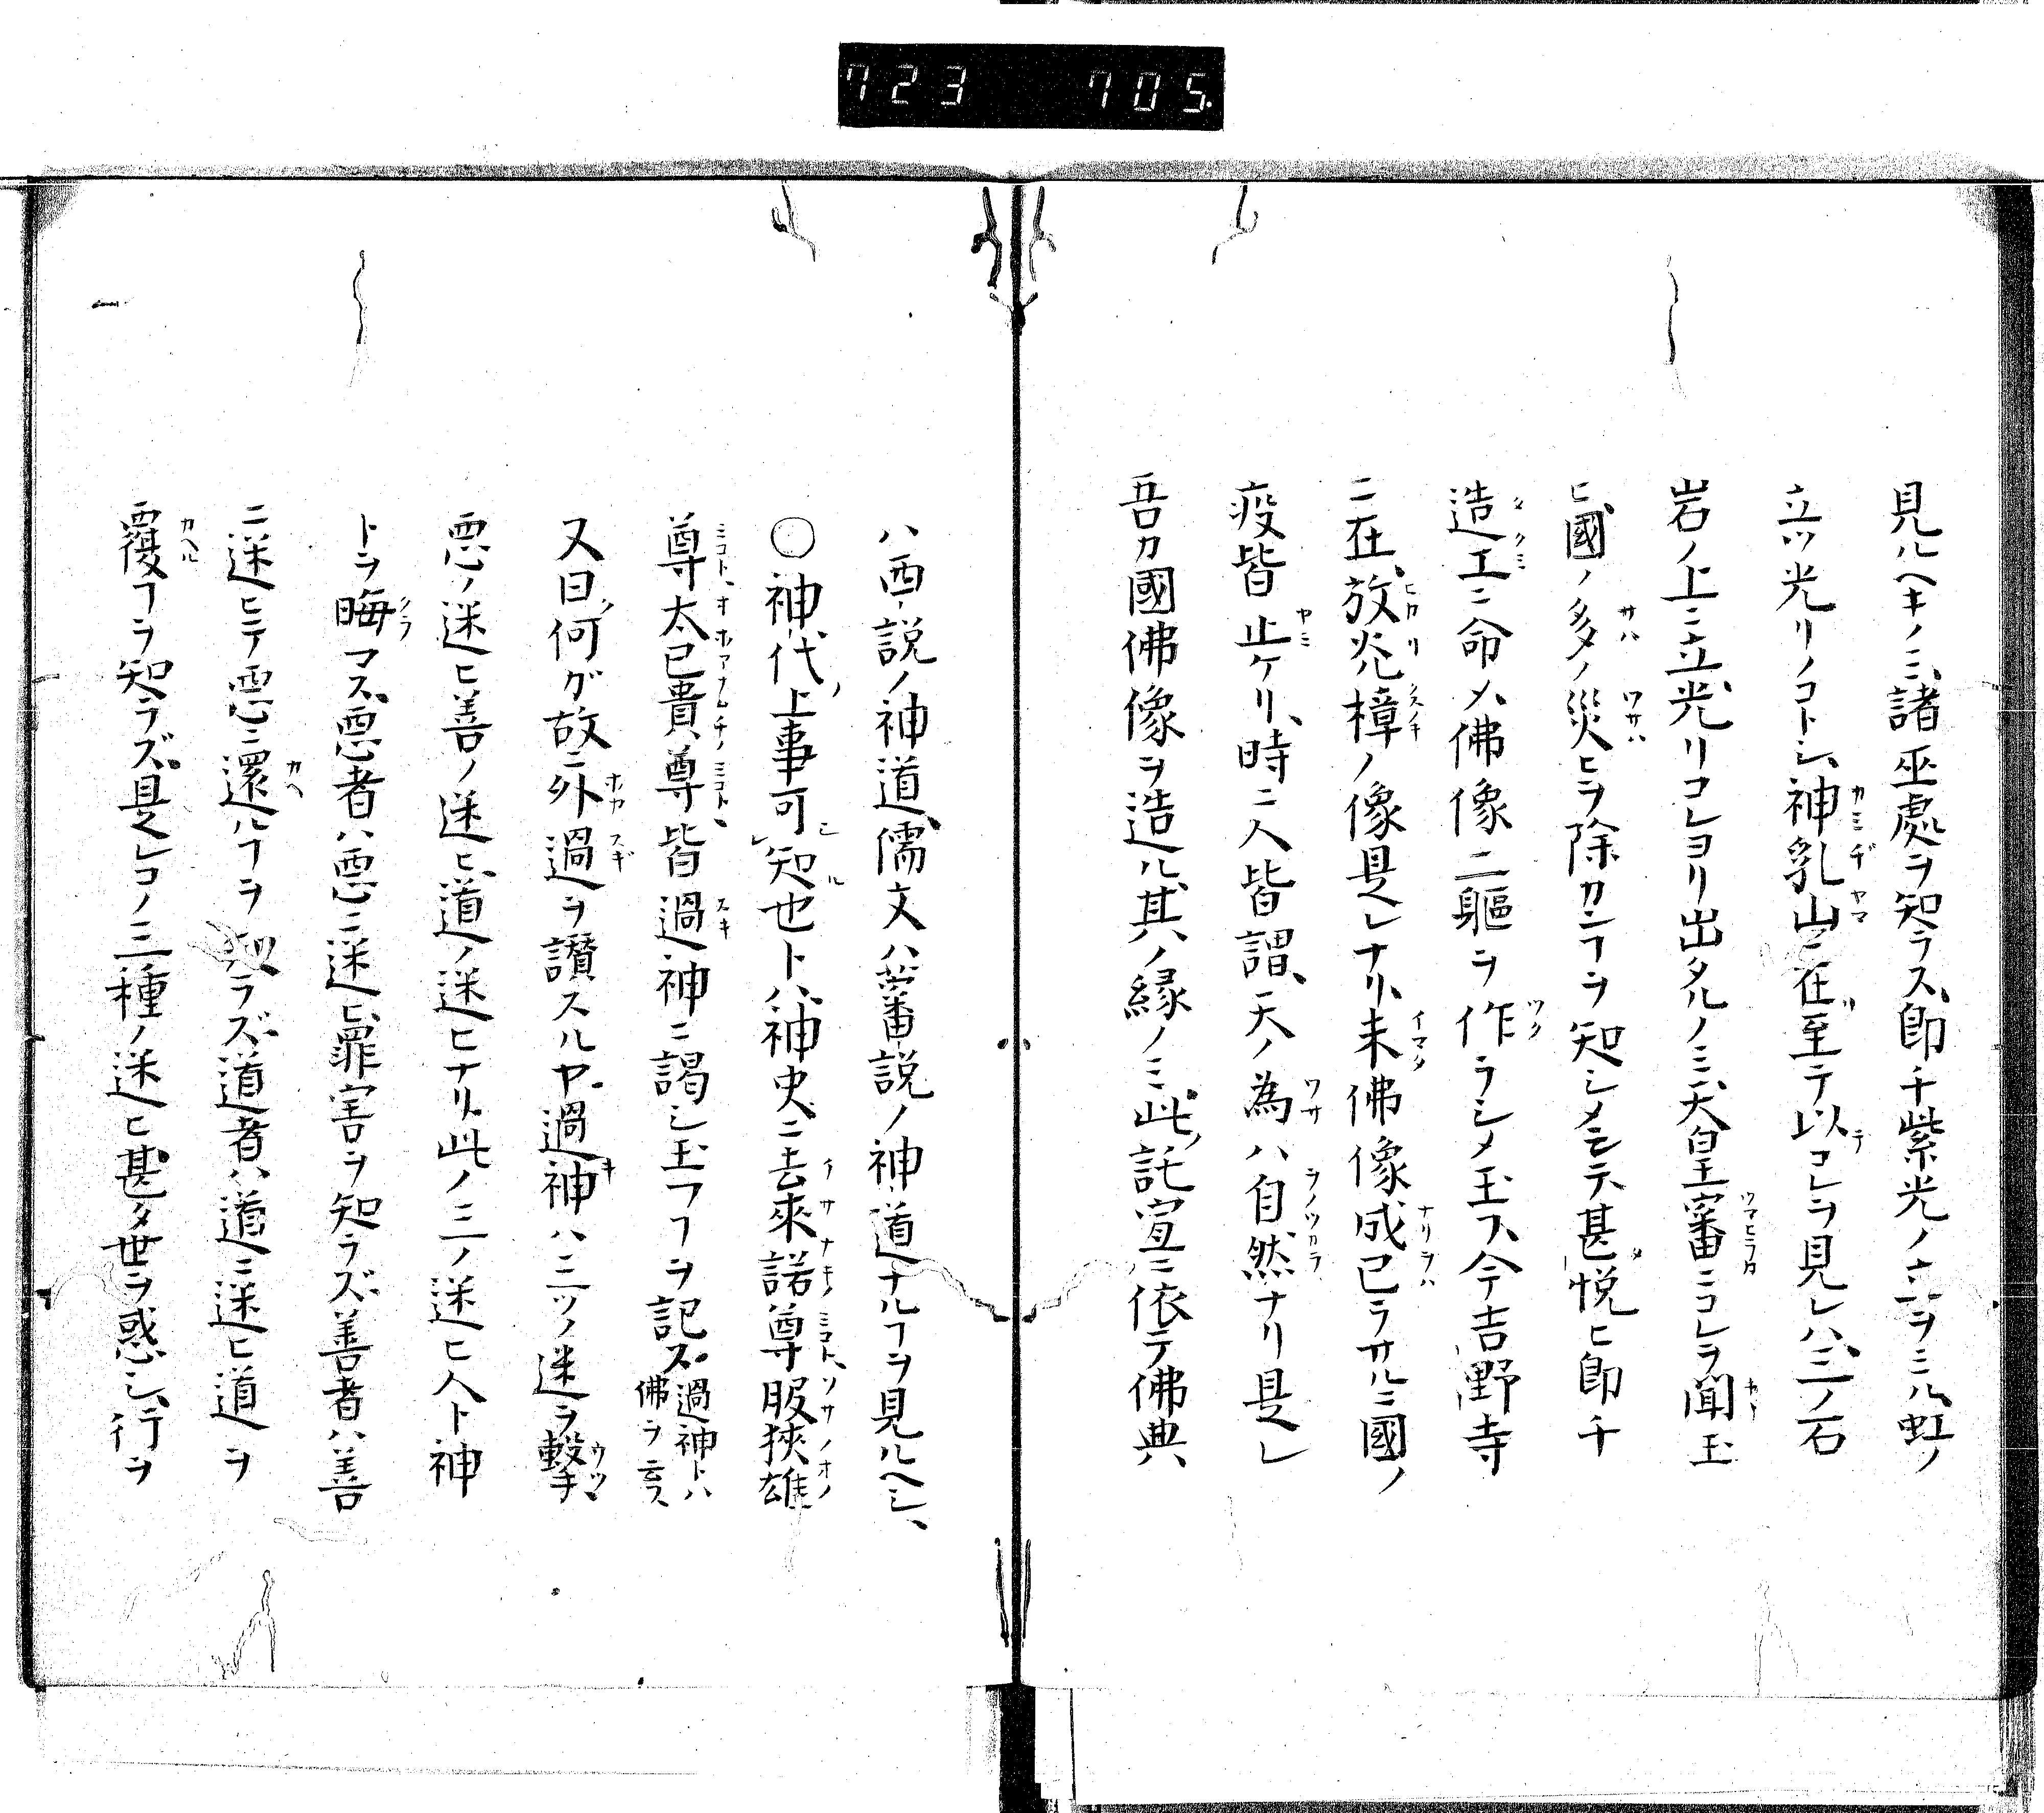 723 705.
見ルヘキノミ、諸巫處ヲ知ラス、即チ紫光ノ立ヲミル、虹ノ
立ツ光リノコトシ、神乳山ニ在至テ以コレヲ見レハ、三ノ石
岩ノ上ニ立、光リコレヨリ出タルノミ、天皇審ニコレラ聞玉
ヒ國ノ多ノ災ヒヲ除カンヿヲ知シメシテ、甚悦ヒ即チ
造工ニ命メ、佛像二軀ヲ作ラシメ玉フ、今吉野寺
ニ在、放光樟ノ像是レナリ、未佛像成已ラサルニ國ノ
疫皆止ケリ、時ニ人皆謂、天ノ為ハ自然ナリ是レ
吾カ國佛像ヲ造ル、其ノ縁ノミ、此ノ託宣ニ依テ佛典
ハ西説ノ神道、儒文ハ蕃説ノ神道ナルヿヲ見ルヘシ、
〇神代ノ上事可知也トハ、神史ニ去來諾尊、服狹雄
尊、太已貴尊、皆過神ニ謁シ玉フヿヲ記ス、過神トハ佛ヲ云フ、
又曰、何ガ故ニ外過ヲ讃スルヤ、過神ハ三ツノ迷ヲ擊チ
悪ノ迷ヒ善ノ迷ヒ、道ノ迷ヒナリ、此ノ三ノ迷ヒ人ト神
トヲ晦マス、悪者ハ悪ニ迷ヒ、罪害ヲ知ラズ、善者ハ善
ニ迷ヒテ悪ニ還ルヿヲ知ラズ、道者ハ道ニ迷ヒ道ヲ
覆ヿヲ知ラズ、是レコノ三種ノ迷ヒ甚タ世ヲ惑シ、行ヲ